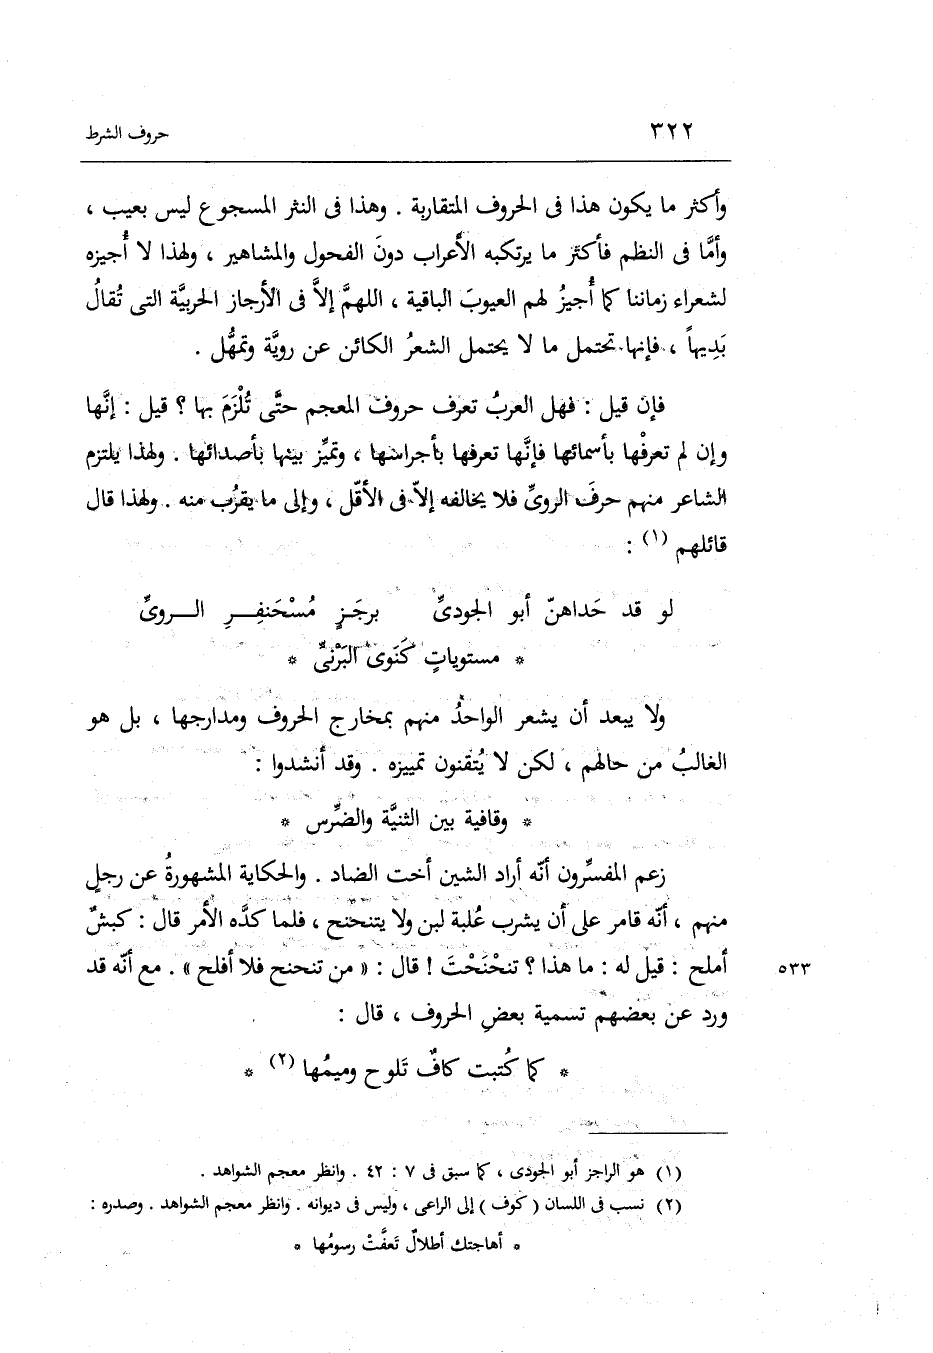 ٣٢٢ حروف الشرط
وأكثر ما يكون هذا فى الحروف المتقاربة . وهذا فى النثر المسجوع ليس بعيب ،
وأمَّا فى النظم فأكثر ما يرتكبه الأَعراب دونَ الفحول والمشاهير ، ولهذا لا أُجيزه
لشعراء زماننا كما أُجيزُ لهم العيوبَ الباقية ، اللهمَّ إلاَّ فى الأرجاز الحربيَّة التى تُقالُ
بَدِيهاً ، فإنها تحتمل ما لا يحتمل الشعرُ الكائن عن رويَّة وتمهُّل .
فإن قيل : فهل العربُ تعرف حروفَ المعجم حتَّى تُلْزَمَ بها ؟ قيل : إنَّها
وإن لم تعرفْها بأسمائها فإنَّها تعرفها بأجراسها ، وتميِّز بينها بأصدائها . ولهذا يلتزم
الشاعر منهم حرفَ الروىِّ فلا يخالفه إلاّ فى الأقّل ، وإلى ما يقرُب منه . ولهذا قال
قائلهم (١) :
لو قد حَداهنّ أبو الجودىِّ برجَزٍ مُسْحَنفِــرِ الــروىِّ
* مستوياتٍ كَنَوى البَرْنىِّ *
ولا يبعد أن يشعر الواحدُ منهم بمخارج الحروف ومدارجها ، بل هو
الغالبُ من حالهم ، لكن لا يُتقنون تمييزه . وقد أنشدوا :
* وقافية بين الثنيَّة والضِّرس *
زعم المفسِّرون أنّه أراد الشين أخت الضاد . والحكاية المشهورةُ عن رجلٍ
منهم ، أنّه قامر على أن يشرب عُلبة لبن ولا يتنحنح ، فلما كدَّه الأمر قال : كبشٌ
أملح : قيل له : ما هذا ؟ تنحْنَحْتَ ! قال : « من تنحنح فلا أفلح » . مع أنّه قد ٥٣٣
ورد عن بعضهم تسمية بعضِ الحروف ، قال :
* كما كُتبت كافٌ تَلوح وميمُها (٢) *
(١) هو الراجز أبو الجودى ، كما سبق فى ٧ : ٤٢ . وانظر معجم الشواهد .
(٢) نسب فى اللسان ( كوف ) إلى الراعى ، وليس فى ديوانه . وانظر معجم الشواهد . وصدره :
* أهاجتك أطلالٌ تَعفَّتْ رسومُها *